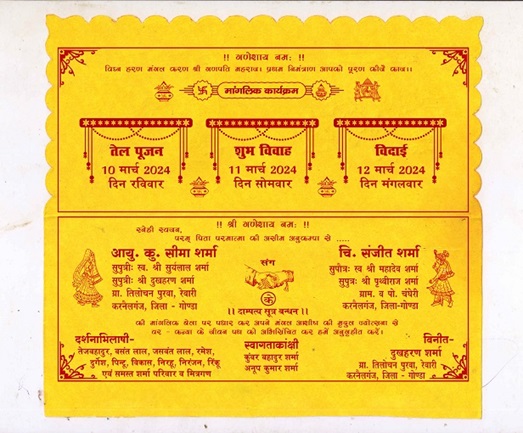 !! गणेशाय नमः !!
विघ्न हरण मंगल करण श्री गणपति महराज। प्रथम निमंत्रण आपको पूरण कीजै काज।।
मांगलिक कार्यक्रम
तेल पूजन
10 मार्च 2024
दिन रविवार
शुभ विवाह
11 मार्च 2024
दिन सोमवार
विदाई
12 मार्च 2024
दिन मंगलवार
!! श्री गणेशाय नमः !!
स्नेही स्वजन,
परम् पिता परमात्मा की असीम अनुकम्पा से .....
आयु. कु. सीमा शर्मा
सुपुत्रीः स्व. श्री सुर्यलाल शर्मा
सुपुत्रीः श्री दुखहरण शर्मा
ग्रा. तिलोचन पुरवा, रेवारी
करनेलगंज, जिला - गोण्डा
संग
के
।। दाम्पत्य सूत्र बन्धन ।।
चि. संजीत शर्मा
सुपौत्रः स्व श्री महादेव शर्मा
सुपुत्रः श्री पृथ्वीराज शर्मा
ग्राम. व पो. चंपेरी
करनेलगंज, जिला-गोण्डा
की मांगलिक बेला पर पधार कर अपने मंगल आशीष की मृदुल ज्योत्सना से
वर - कन्या के जीवन पथ को अभिसिंचित कर हमें अनुग्रहीत करें।
दर्शनाभिलाषी-
तेजबहादुर, बसंत लाल, जसवंत लाल, रमेश,
दुर्गेश, पिन्टू, विकास, निरहू, निरंजन, रिंकू
एवं समस्त शर्मा परिवार व मित्रगण
स्वागताकांक्षी
कुंवर बहादुर शर्मा
अनूप कुमार शर्मा
विनीत-
दुखहरण शर्मा
ग्रा. तिलोचन पुरवा, रेवारी
करनेलगंज, जिला - गोण्डा